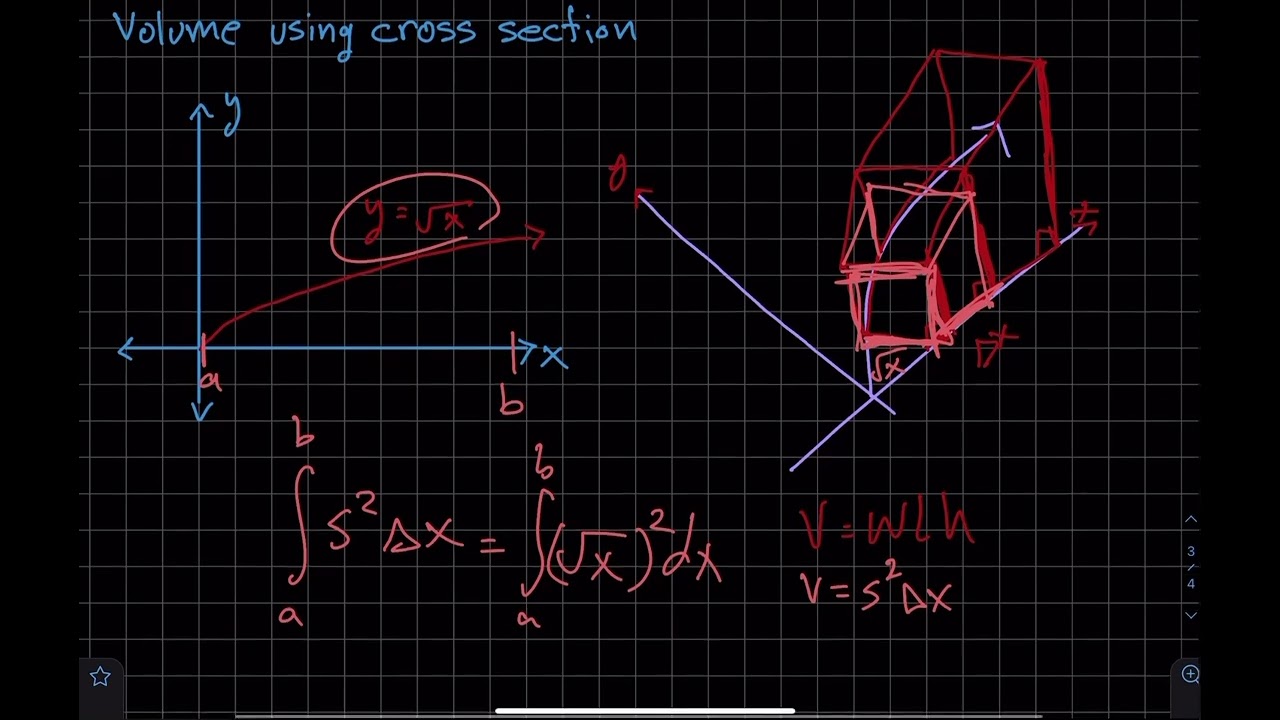 Volume using cross section
y
y = √x
a
b
x
y
x
√x
Δx
∫ₐᵇ s² Δx = ∫ₐᵇ (√x)² dx
V = w l h
V = s² Δx
3
/
4